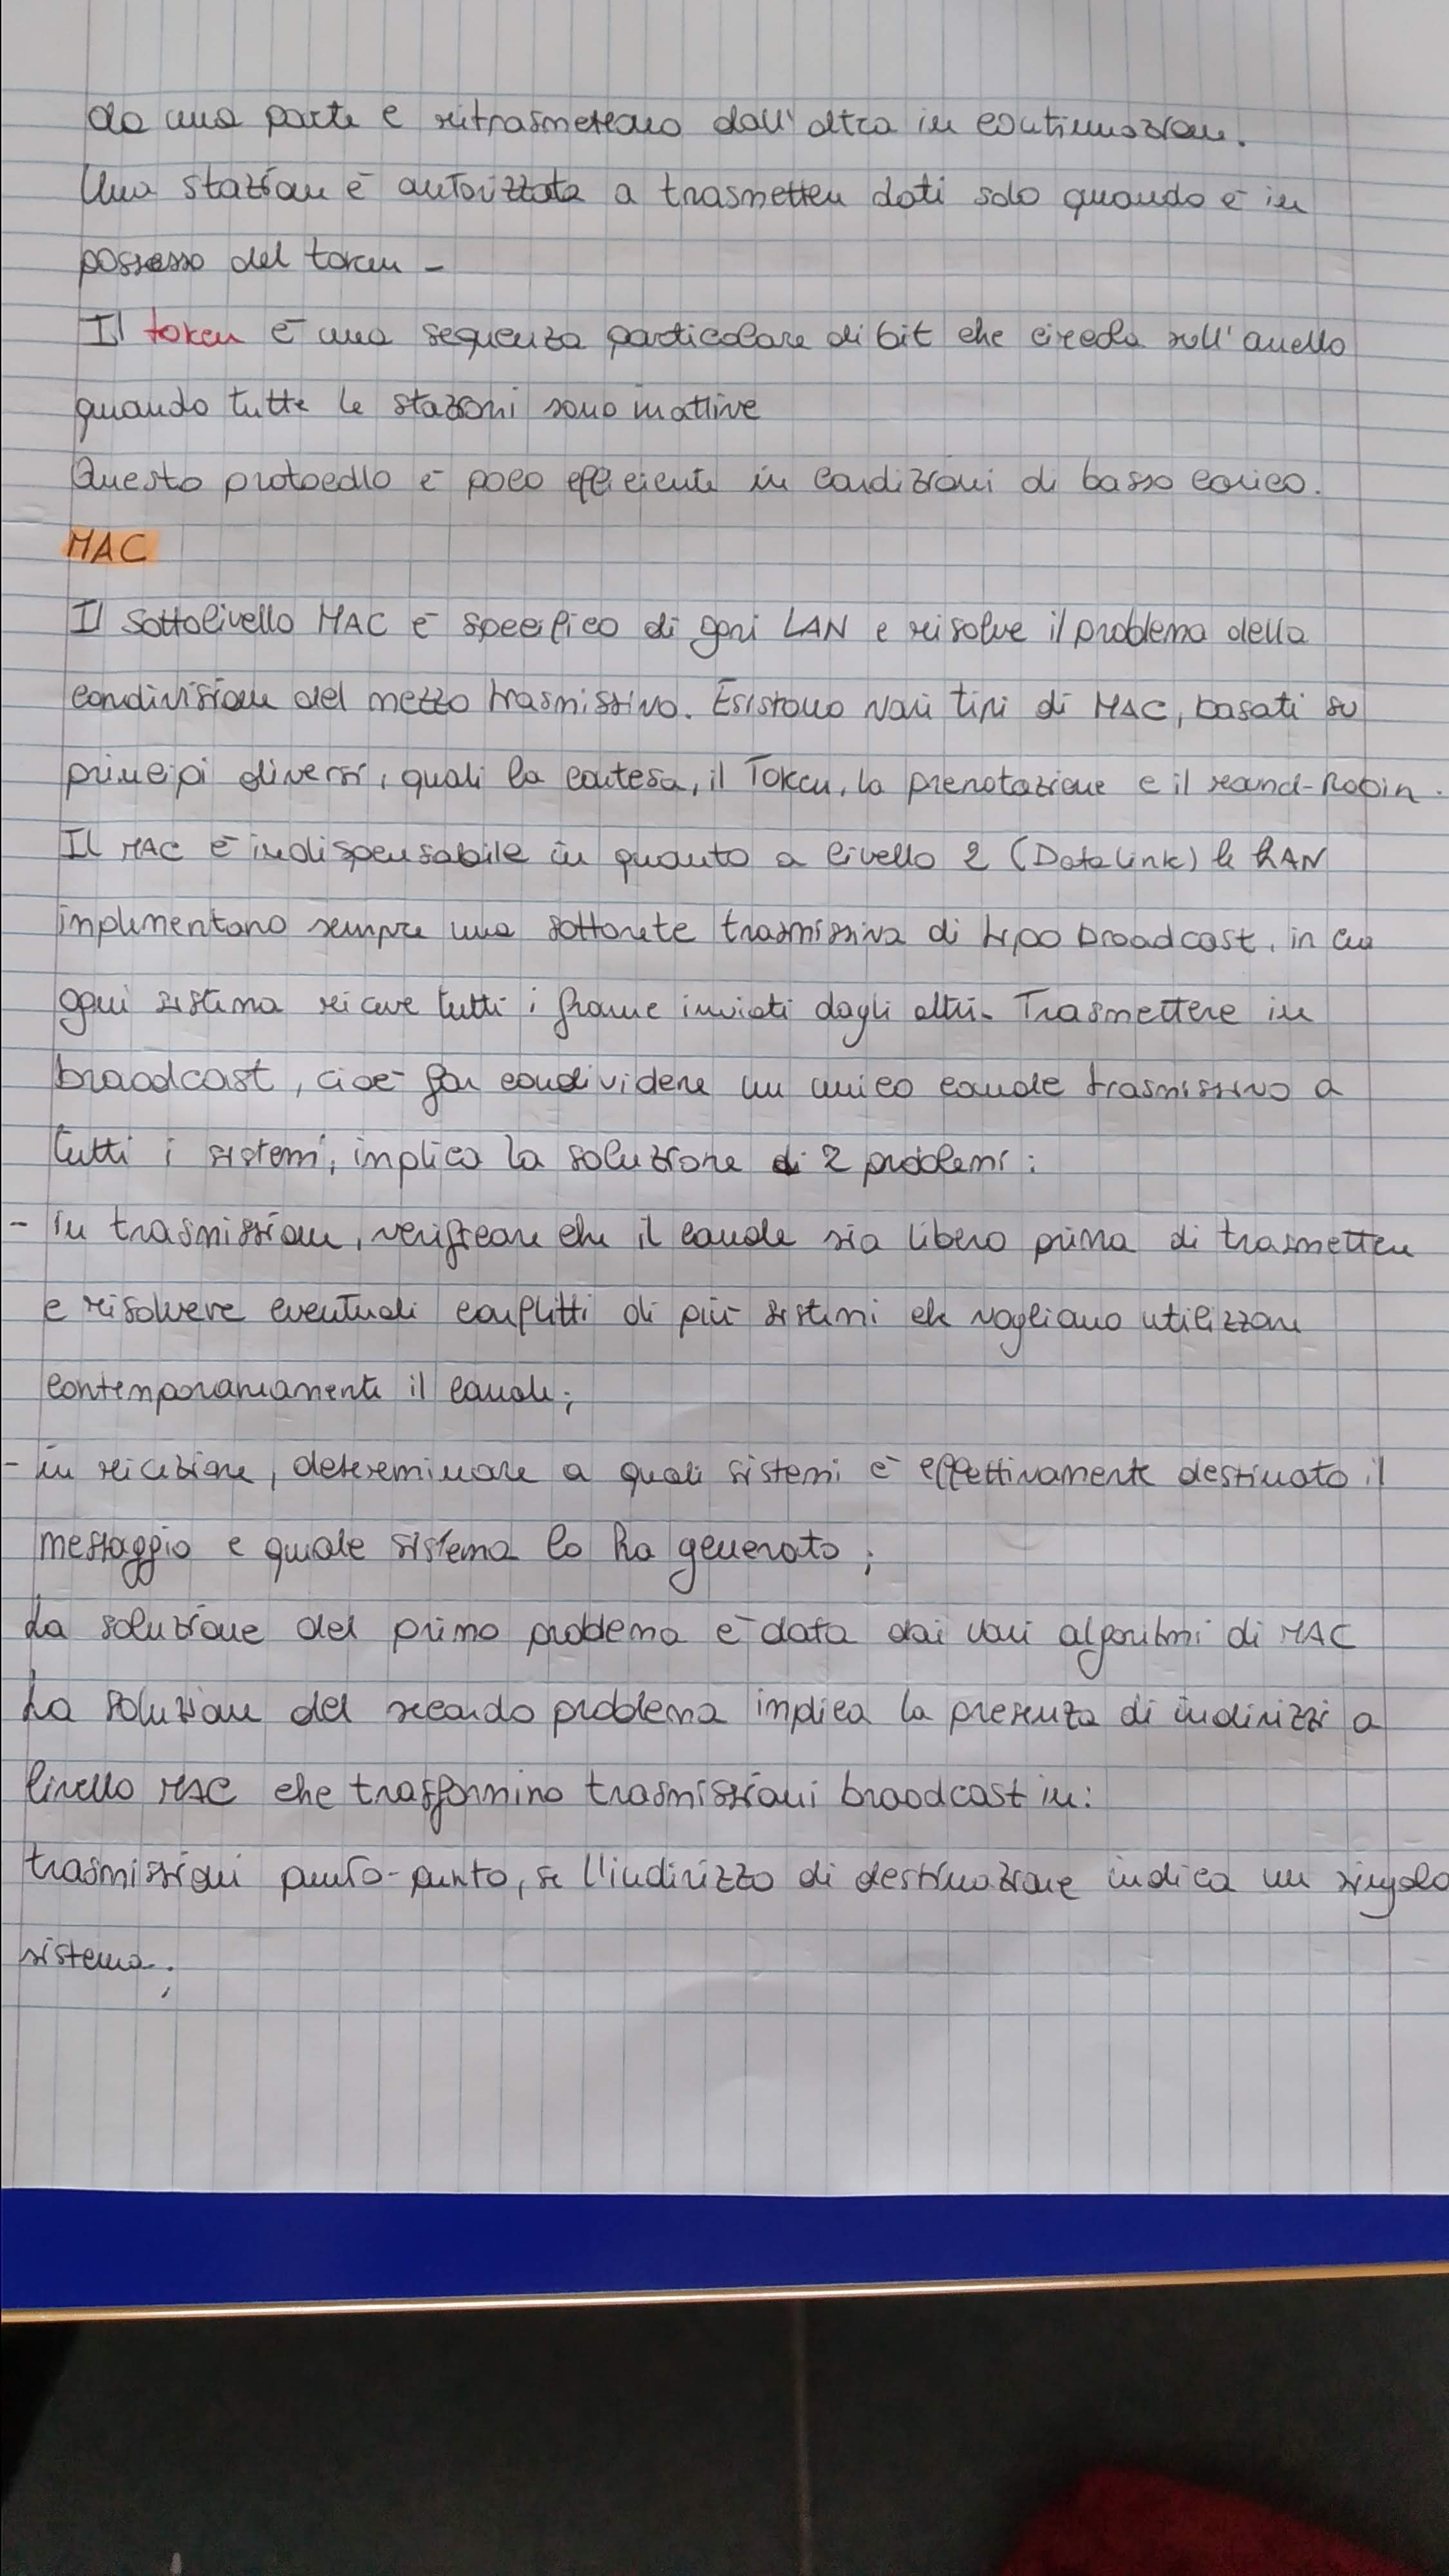 da una parte e ritrasmettono dall'altra in continuazione.
Una stazione è autorizzata a trasmettere dati solo quando è in
possesso del token -
Il token è una sequenza particolare di bit che circola sull'anello
quando tutte le stazioni sono inattive
Questo protocollo è poco efficiente in condizioni di basso carico.
MAC
Il sottolivello MAC è specifico di ogni LAN e risolve il problema della
condivisione del mezzo trasmissivo. Esistono vari tipi di MAC, basati su
principi diversi, quali la contesa, il Token, la prenotazione e il round-Robin.
Il MAC è indispensabile in quanto a livello 2 (Data Link) le LAN
implementano sempre una sottorete trasmissiva di tipo broadcast, in cui
ogni sistema riceve tutti i frame inviati dagli altri. Trasmettere in
broadcast, cioè far condividere un unico canale trasmissivo a
tutti i sistemi, implica la soluzione di 2 problemi:
- in trasmissione, verificare che il canale sia libero prima di trasmettere
e risolvere eventuali conflitti di più sistemi che vogliano utilizzare
contemporaneamente il canale;
- in ricezione, determinare a quali sistemi è effettivamente destinato il
messaggio e quale sistema lo ha generato;
La soluzione del primo problema è data dai vari algoritmi di MAC
La soluzione del secondo problema implica la presenza di indirizzi a
livello MAC che trasformino trasmissioni broadcast in:
trasmissioni punto-punto, se l'indirizzo di destinazione indica un singolo
sistema;